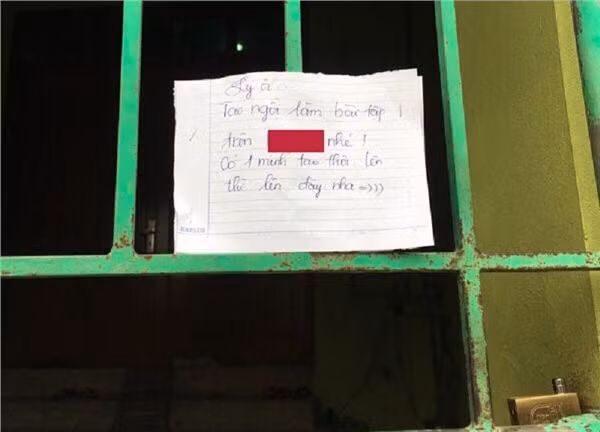 Ly ơi
Tao ngồi làm bài tập
trên nhé !
Có 1 mình tao thôi lên
thì lên đây nha =)))